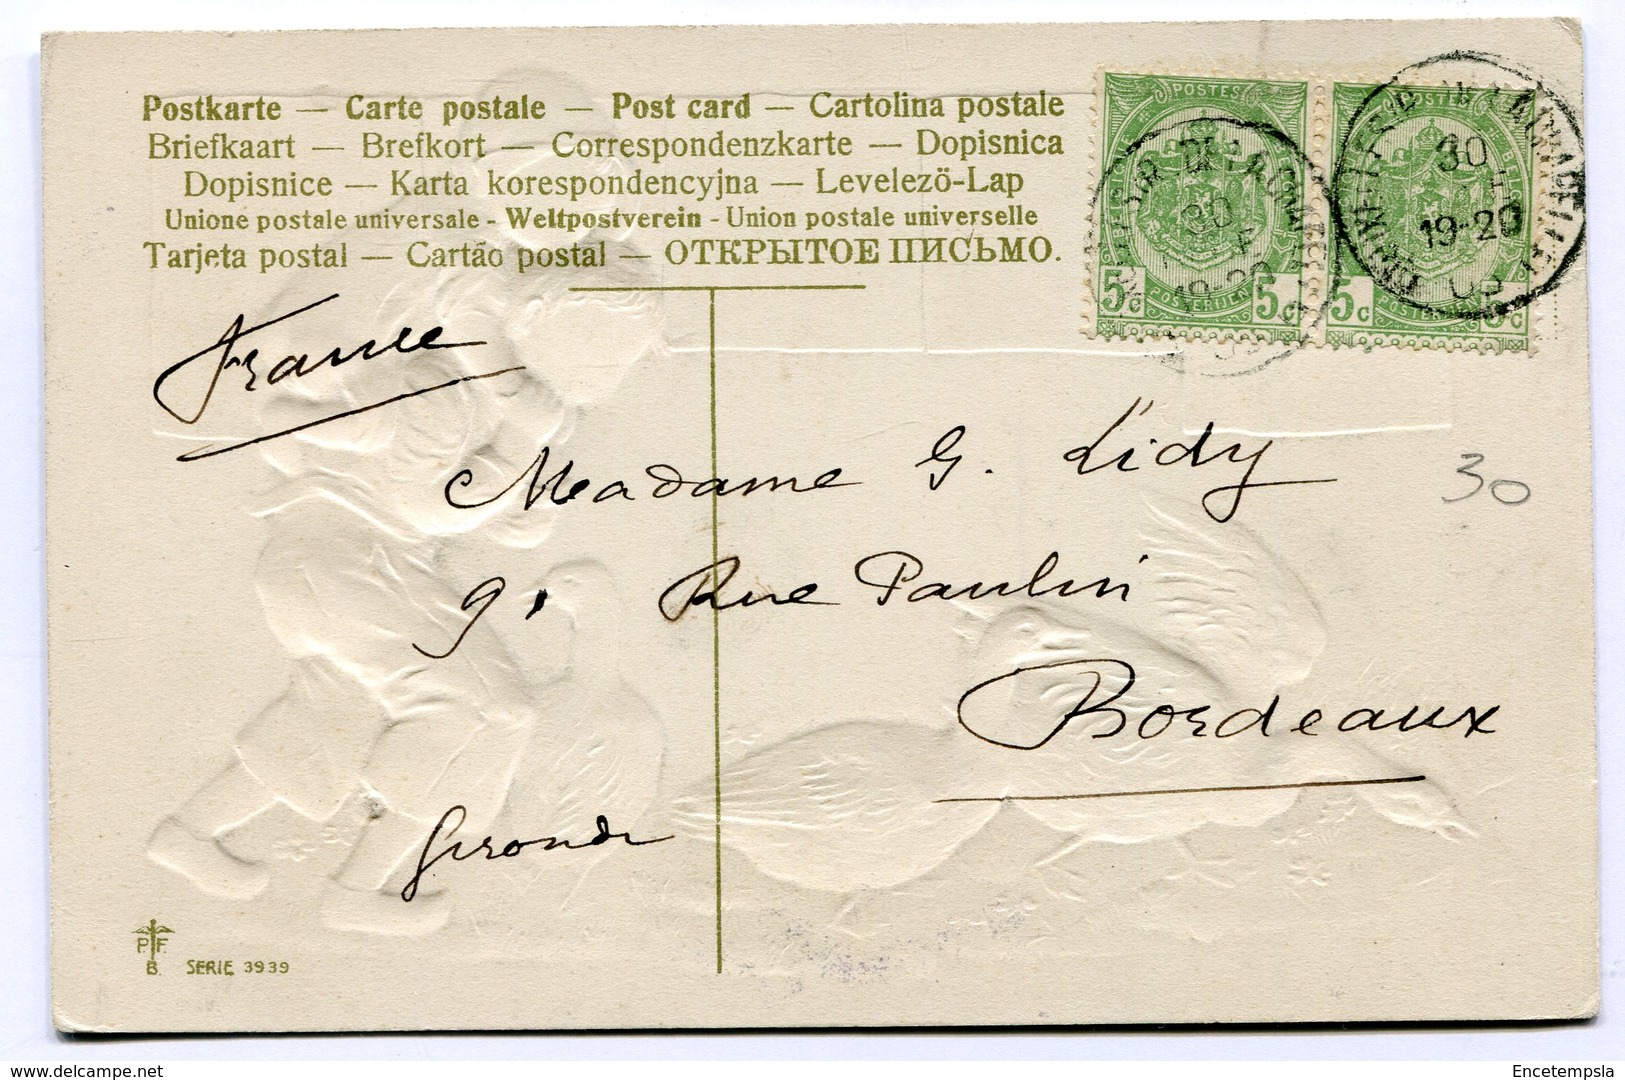 Postkarte — Carte postale — Post card — Cartolina postale
Briefkaart — Brefkort — Correspondenzkarte — Dopisnica
Dopisnice — Karta korespondencyjna — Levelező-Lap
Unione postale universale - Weltpostverein - Union postale universelle
Tarjeta postal — Cartão postal — ОТКРЫТОЕ ПИСЬМО.
POSTES
5c POSTERIJEN 5c
POSTES
5c 5c
30
19-20
France
Madame G. Lidy
30
9, Rue Paulin
Bordeaux
Gironde
P. F.
B. SERIE 3939
Encetempsla